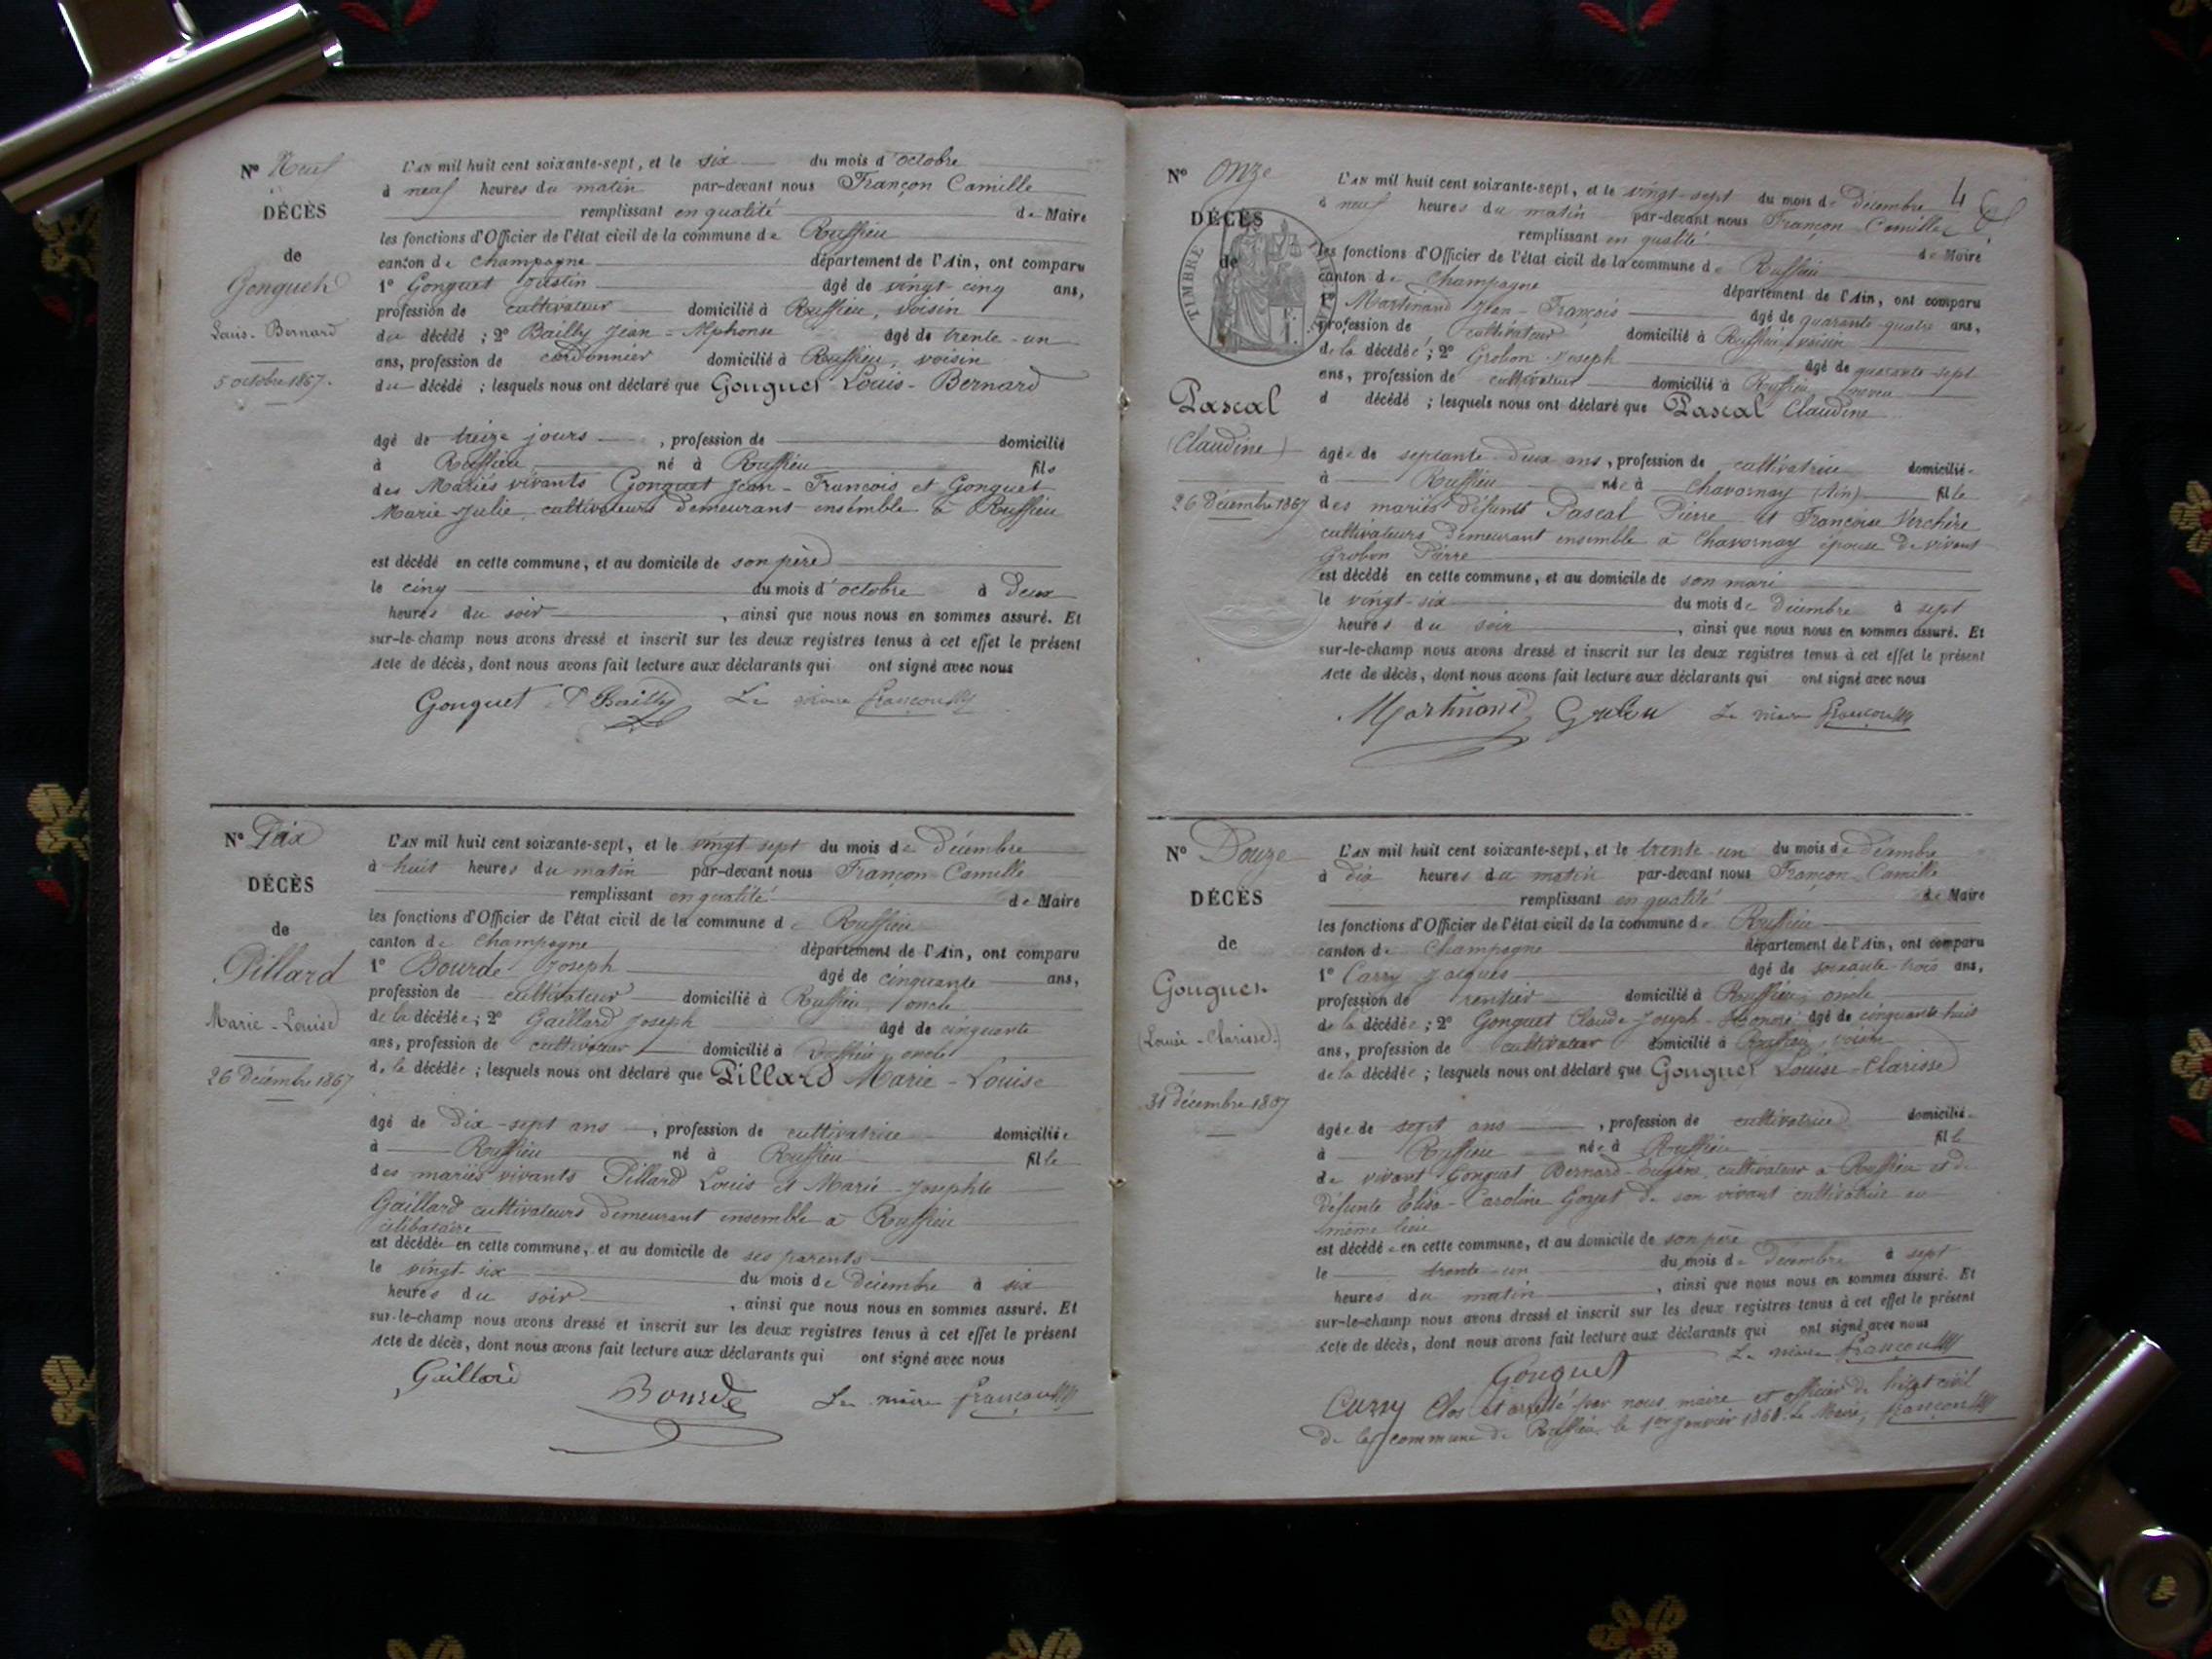 N° Neuf
DÉCÈS
de
Gonguet
Louis-Bernard
5 octobre 1867.
L'AN mil huit cent soixante-sept, et le six du mois d'octobre
à neuf heures du matin par-devant nous Françon Camille
remplissant en qualité de Maire
les fonctions d'Officier de l'état civil de la commune de Ruffieu
canton de Champagne département de l'Ain, ont comparu
1° Gonguet Justin âgé de vingt-cinq ans,
profession de cultivateur domicilié à Ruffieu, voisin
du décédé ; 2° Bailly Jean-Alphonse âgé de trente-un
ans, profession de cordonnier domicilié à Ruffieu, voisin
du décédé ; lesquels nous ont déclaré que Gonguet Louis-Bernard
âgé de treize jours , profession de domicilié
à Ruffieu né à Ruffieu fils
des Mariés vivants Gonguet Jean-François et Gonguet
Marie Julie, cultivateurs demeurans ensemble à Ruffieu
est décédé en cette commune, et au domicile de son père
le cinq du mois d'octobre à deux
heures du soir , ainsi que nous nous en sommes assuré. Et
sur-le-champ nous avons dressé et inscrit sur les deux registres tenus à cet effet le présent
Acte de décès, dont nous avons fait lecture aux déclarants qui ont signé avec nous
Gonguet Bailly Le maire Françon
N° Dix
DÉCÈS
de
Pillard
Marie-Louise
26 décembre 1867
L'AN mil huit cent soixante-sept, et le vingt sept du mois de décembre
à huit heures du matin par-devant nous Françon Camille
remplissant en qualité de Maire
les fonctions d'Officier de l'état civil de la commune de Ruffieu
canton de Champagne département de l'Ain, ont comparu
1° Bourde Joseph âgé de cinquante ans,
profession de cultivateur domicilié à Ruffieu, oncle
de la décédée ; 2° Gaillard Joseph âgé de cinquante
ans, profession de cultivateur domicilié à Ruffieu, oncle
de la décédée ; lesquels nous ont déclaré que Pillard Marie-Louise
âgé de dix-sept ans , profession de cultivatrice domiciliée
à Ruffieu né à Ruffieu fille
des mariés vivants Pillard Louis et Marie Josephte
Gaillard cultivateurs demeurant ensemble à Ruffieu
célibataire
est décédée en cette commune, et au domicile de ses parents
le vingt-six du mois de décembre à six
heures du soir , ainsi que nous nous en sommes assuré. Et
sur-le-champ nous avons dressé et inscrit sur les deux registres tenus à cet effet le présent
Acte de décès, dont nous avons fait lecture aux déclarants qui ont signé avec nous
Gaillard Bourde Le maire Françon
4
N° Onze
DÉCÈS
de
TIMBRE
Pascal
(Claudine)
26 Décembre 1867
L'AN mil huit cent soixante-sept, et le vingt-sept du mois de décembre
à neuf heures du matin par-devant nous Françon Camille
remplissant en qualité de Maire
les fonctions d'Officier de l'état civil de la commune de Ruffieu
canton de Champagne département de l'Ain, ont comparu
1° Martinand Jean-François âgé de quarante-quatre ans,
profession de cultivateur domicilié à Ruffieu, voisin
de la décédée ; 2° Grobon Joseph âgé de quarante-sept
ans, profession de cultivateur domicilié à Ruffieu, neveu
d décédé ; lesquels nous ont déclaré que Pascal Claudine
âgée de septante-deux ans, profession de cultivatrice domiciliée
à Ruffieu née à Chavornay (Ain) fille
des mariés défunts Pascal Pierre et Françoise Verchère
cultivateurs demeurant ensemble à Chavornay épouse de vivant
Grobon Pierre
est décédé en cette commune, et au domicile de son mari
le vingt-six du mois de décembre à sept
heures du soir , ainsi que nous nous en sommes assuré. Et
sur-le-champ nous avons dressé et inscrit sur les deux registres tenus à cet effet le présent
Acte de décès, dont nous avons fait lecture aux déclarants qui ont signé avec nous
Martinand Grobon Le maire Françon
N° Douze
DÉCÈS
de
Gonguet
(Louise-Clarisse)
31 décembre 1867
L'AN mil huit cent soixante-sept, et le trente un du mois de décembre
à dix heures du matin par-devant nous Françon Camille
remplissant en qualité de Maire
les fonctions d'Officier de l'état civil de la commune de Ruffieu
canton de Champagne département de l'Ain, ont comparu
1° Carry Jacques âgé de soixante-trois ans,
profession de rentier domicilié à Ruffieu, oncle
de la décédée ; 2° Gonguet Claude-Joseph-Honoré âgé de cinquante-huit
ans, profession de cultivateur domicilié à Ruffieu, voisin
de la décédée ; lesquels nous ont déclaré que Gonguet Louise-Clarisse
âgée de sept ans , profession de cultivatrice domiciliée
à Ruffieu née à Ruffieu fille
de vivant Gonguet Bernard-Eugène, cultivateur à Ruffieu et de
défunte Elisa-Caroline Goyet de son vivant cultivatrice au
même lieu
est décédée en cette commune, et au domicile de son père
le trente-un du mois de Décembre à sept
heures du matin , ainsi que nous nous en sommes assuré. Et
sur-le-champ nous avons dressé et inscrit sur les deux registres tenus à cet effet le présent
Acte de décès, dont nous avons fait lecture aux déclarants qui ont signé avec nous
Gonguet Le maire Françon
Carry Clos et arrêté par nous maire et officier de l'état civil
de la commune de Ruffieu le 1er Janvier 1868. Le Maire, Françon